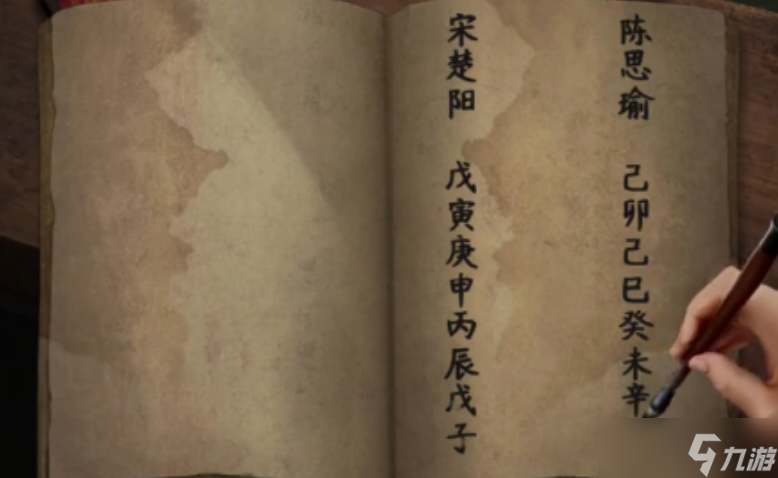 陈思瑜 己卯己巳癸未辛
宋楚阳 戊寅庚申丙辰戊子
九游